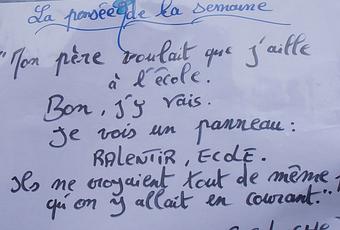 La pensée de la semaine
"Mon père voulait que j'aille
à l'école.
Bon, j'y vais.
Je vois un panneau :
RALENTIR, ECOLE.
Ils ne croyaient tout de même
qu'on y allait en courant."